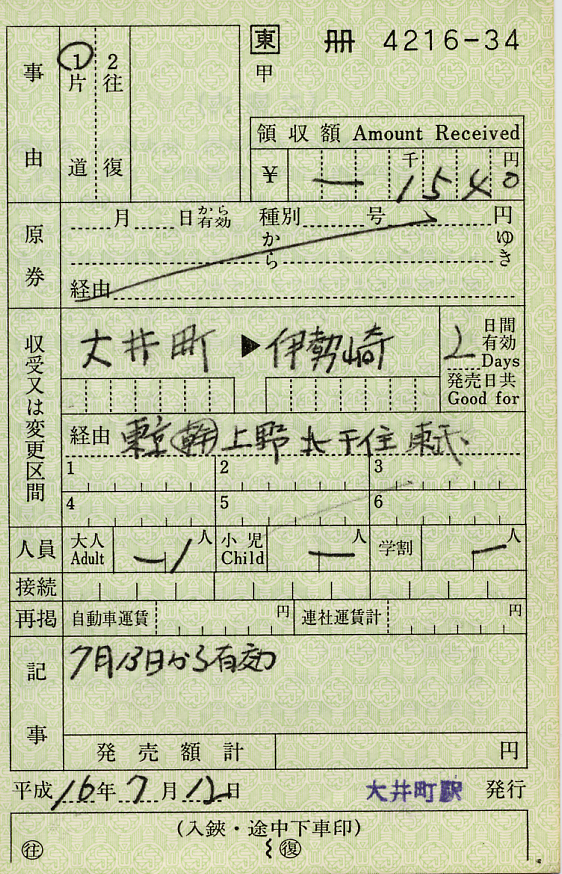 東 冊 4216-34
甲
事由 1片道 2往復
領収額 Amount Received
¥ 一 千1540円
原券 月 日から有効 種別 号 円
から ゆき
経由
収受又は変更区間 大井町 ▶ 伊勢崎 2日間有効 Days
発売日共 Good for
経由 東京 幹 上野 北千住 東武
1 2 3
4 5 6
人員 大人 Adult 一1人 小児 Child 一人 学割 一人
接続
再掲 自動車運賃 円 連社運賃計 円
記事 7月13日から有効
発売額計 円
平成16年7月12日 大井町駅 発行
(入鋏・途中下車印)
往 復